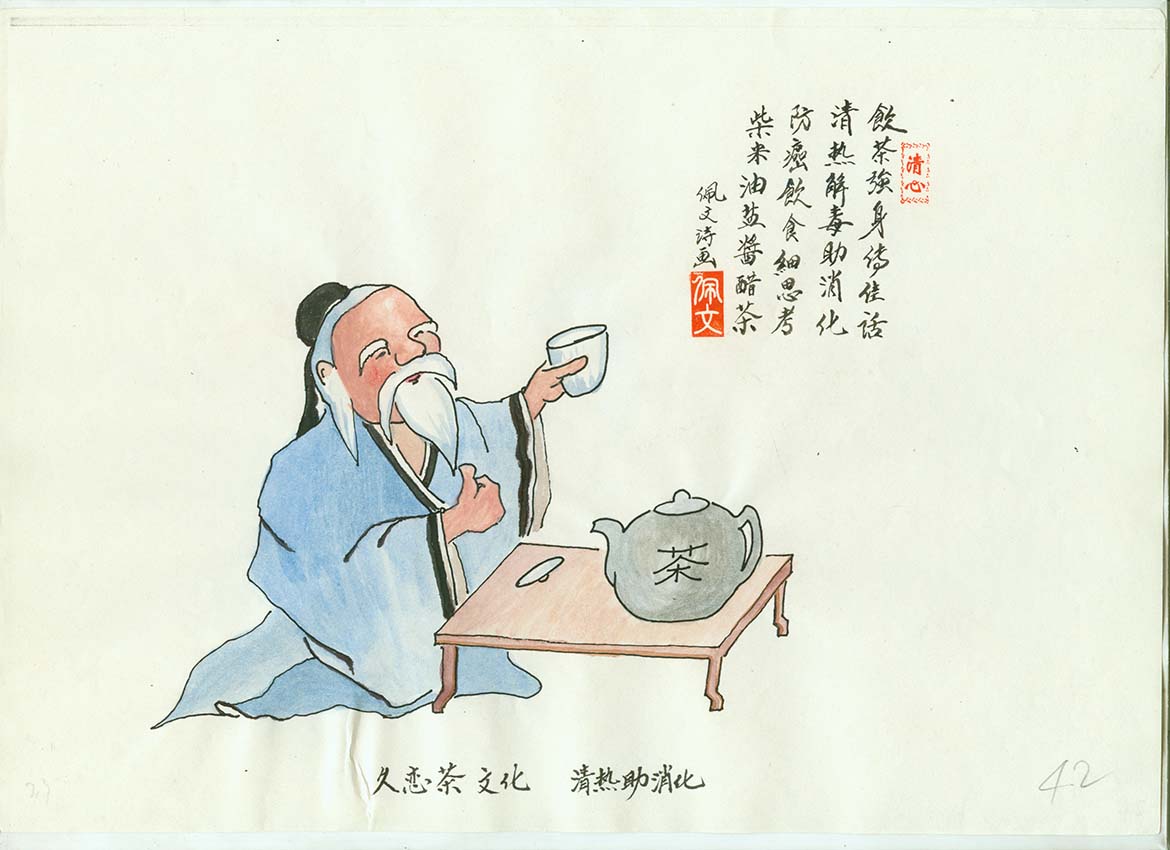 清心
飲茶強身傳佳話
清热解毒助消化
防癌飲食細思考
柴米油盐醬醋茶
佩文诗画
佩文
茶
久恋茶文化 清热助消化
42